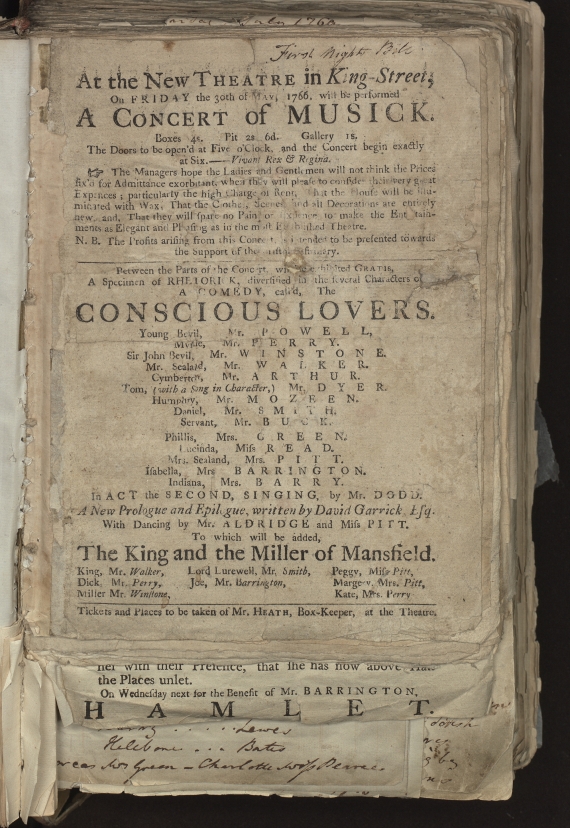 July 1766
First Night Bill
At the New THEATRE in King-Street,
On FRIDAY the 30th of May, 1766, will be performed
A CONCERT of MUSICK.
Boxes 4s. Pit 2s 6d. Gallery 1s.
The Doors to be open'd at Five o'Clock, and the Concert begin exactly
at Six.—Vivant Rex & Regina.
☞ The Managers hope the Ladies and Gentlemen will not think the Prices
fix'd for Admittance exorbitant, when they will please to consider their very great
Expences; particularly the high Charge of Rent, That the House will be illu-
minated with Wax, That the Cloaths, Scenes and all Decorations are entirely
new, and, That they will spare no Pains or Expence to make the Entertain-
ments as Elegant and Pleasing as in the most Established Theatre.
N. B. The Profits arising from this Concert, intended to be presented towards
the Support of the Infirmary.
Between the Parts of the Concert, will be exhibited GRATIS,
A Specimen of RHETORICK, diversified in the several Characters of
A COMEDY, call'd, The
CONSCIOUS LOVERS.
Young Bevil, Mr. POWELL,
Myrtle, Mr. PERRY.
Sir John Bevil, Mr. WINSTONE.
Mr. Sealand, Mr. WALKER.
Cymberton, Mr. ARTHUR.
Tom, (with a Song in Character,) Mr. DYER.
Humphry, Mr. MOZEEN.
Daniel, Mr. SMITH.
Servant, Mr. BUCK.
Phillis, Mrs. GREEN.
Lucinda, Miss READ.
Mrs. Sealand, Mrs. PITT.
Isabella, Mrs BARRINGTON.
Indiana, Mrs. BARRY.
In ACT the SECOND, SINGING, by Mr. DODD.
A New Prologue and Epilogue, written by David Garrick, Esq.
With Dancing by Mr. ALDRIDGE and Miss PITT.
To which will be added,
The King and the Miller of Mansfield.
King, Mr. Walker, Lord Lurewell, Mr. Smith, Peggy, Miss Pitt,
Dick, Mr. Perry, Joe, Mr. Barrington, Margery, Mrs. Pitt,
Miller Mr. Winstone, Kate, Mrs. Perry
Tickets and Places to be taken of Mr. HEATH, Box-Keeper, at the Theatre.
her with their Presence, that she has now above
the Places unlet.
On Wednesday next for the Benefit of Mr. BARRINGTON,
HAMLET.
Lewes
Bates
Mrs Green - Charlotte Miss